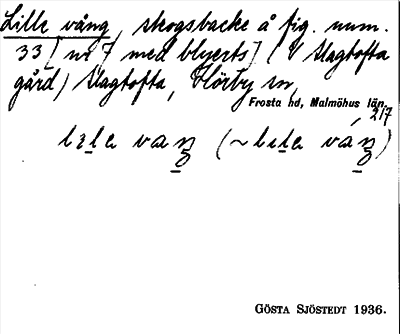 Lille vång, skogsbacke å fig. num.
33 [nr 7 med blyerts] (V Slagtofta
gård) Slagtofta, Hörby sn,
Frosta hd, Malmöhus län.
217
GÖSTA SJÖSTEDT 1936.